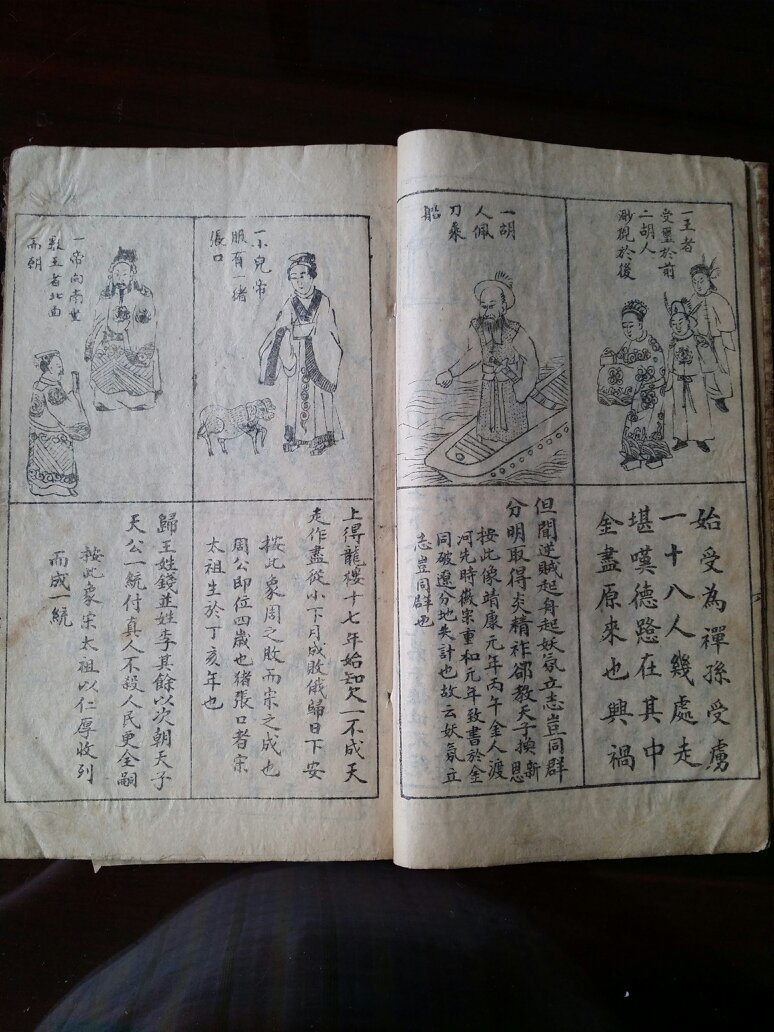 一王者
受璽於前
二胡人
於後
始受為禪孫受虜
一十八人幾處走
堪嘆德 在其中
金盡原來也興禍
一胡
人佩
刀乘
船
但聞逆賊起身起妖氛立志豈同群
分明取得炎精祚郤教天子換新恩
按此像靖康元年丙午金人渡
河先時徽宗重和元年致書於金
同破遼分地失計也故云妖氛立
志豈同群也
一小兒帝
服有一猪
張口
上得龍樓十七年始知欠一不成天
走作盡從小下月成敗俄歸日下安
按此象周之敗而宋之成也
周公即位四歲也猪張口者宋
太祖生於丁亥年也
一帝向南坐
數王者北面
而朝
歸王姓錢並姓李其餘以次朝天子
天公一統付真人不殺人民更全嗣
按此象宋太祖以仁厚收列
而成一統